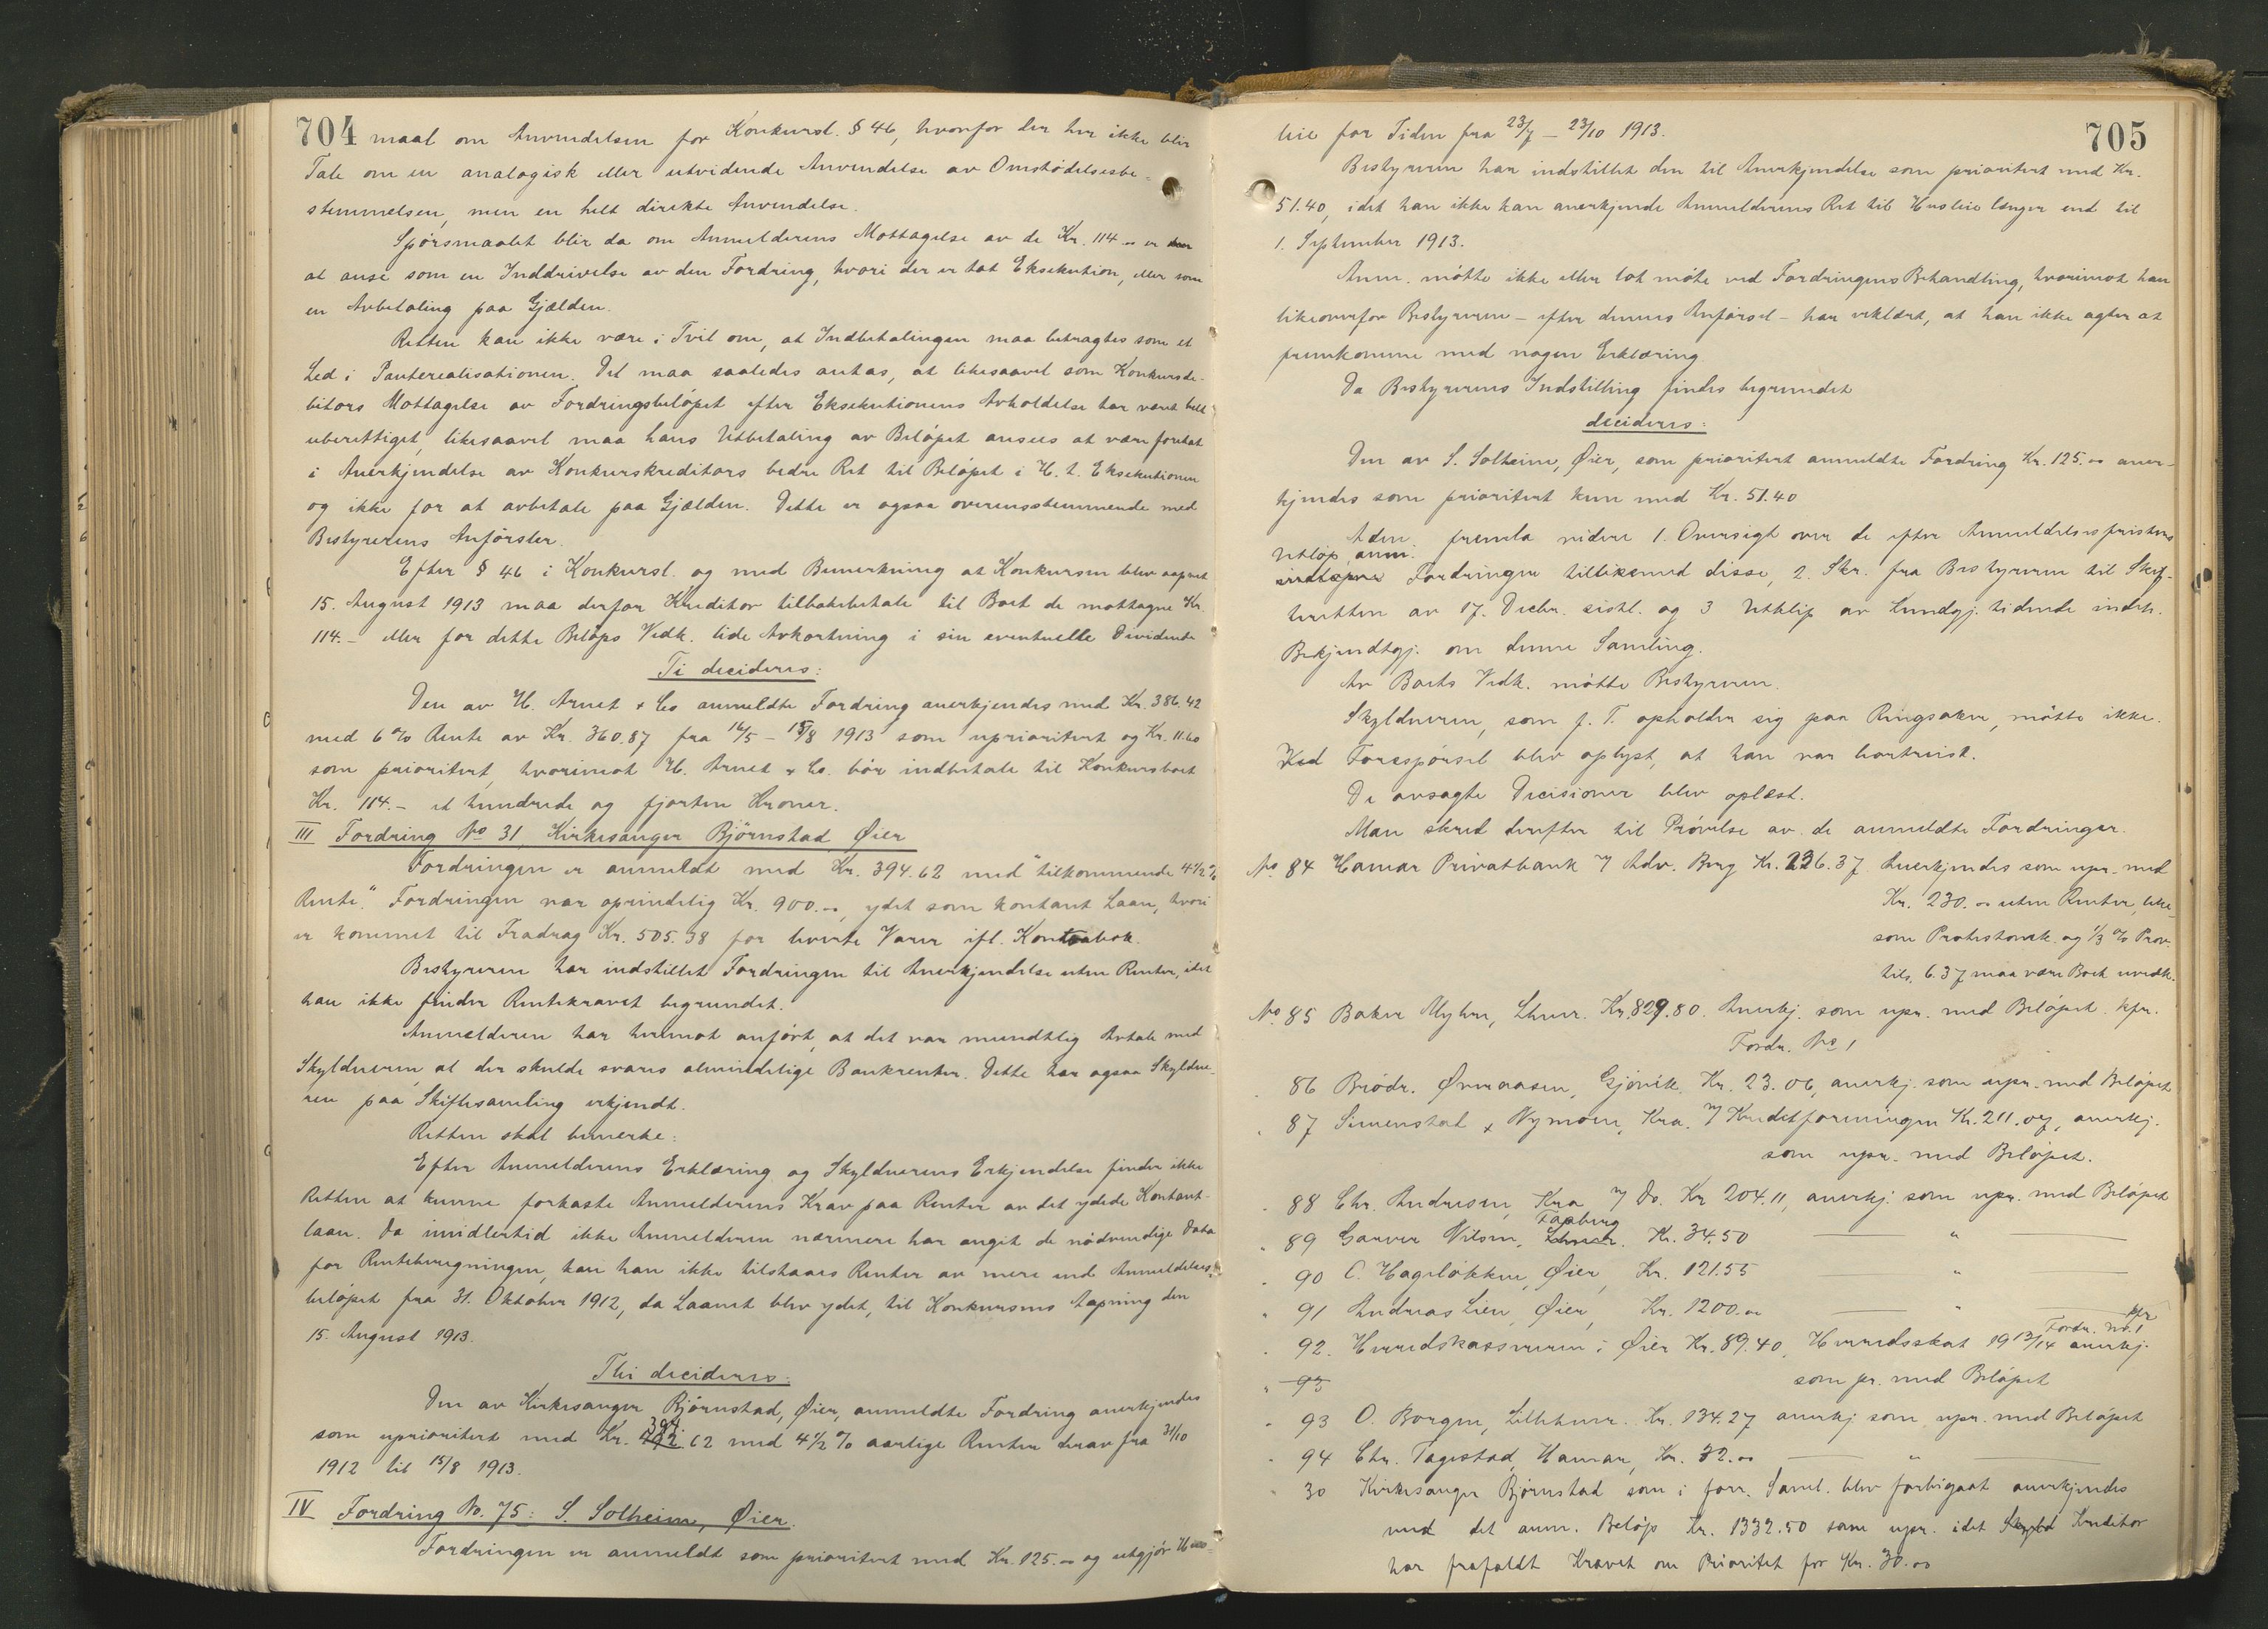 704 maal om Anvendelsen for Konkursl. § 46, hvorfor der her ikke blir
Tale om en analogisk eller utvidende Anvendelse av Omstødelsesbe=
stemmelsen, men en helt direkte Anvendelse.
Spørsmaalet blir da om Anmelderens Mottagelse av de Kr. 114.- er
at anse som en Inddrivelse av den Fordring, hvori der er tat Eksekution, eller som
en Avbetaling paa Gjælden.
Retten kan ikke være i Tvil om, at Indbetalingen maa betragtes som et
Led i Panterealisationen. Det maa saaledes antas, at likesaavel som Konkursde-
bitors Mottagelse av Fordringsbeløpet efter Eksekutionens Avholdelse har været helt
uberettiget, likesaavel maa hans Utbetaling av Beløpet ansees at være foretat
i Anerkjendelse av Konkurskreditors bedre Ret til Beløpet i H. t. Eksekutionen
og ikke for at avbetale paa Gjælden. Dette er ogsaa overensstemmende med
Bestyrerens Anførsler.
Efter § 46 i Konkursl. og med Bemerkning at Konkursen blev aapnet
15. August 1913 maa derfor Kreditor tilbakebetale til Boet de mottagne Kr.
114.- eller for dette Beløps Vedk. lide Avkortning i sin eventuelle Dividende
Ti decideres:
Den av H. Arnet & Co anmeldte Fordring anerkjendes med Kr. 386.42
med 6 % Rente av Kr. 360.87 fra 16/5 - 15/8 1913 som uprioritert og Kr. 11.60
som prioritert, hvorimot H. Arnet & Co. bør indbetale til Konkursboet
Kr. 114.- et hundrede og fjorten Kroner.
III Fordring No 31, Kirkesanger Bjørnstad Øier
Fordringen er anmeldt med Kr. 394.62 med "tilkommende 4 1/2 %
Rente." Fordringen var oprindelig Kr. 900.-, ydet som kontant Laan, hvori
er kommet til Fradrag Kr. 505.38 for leverte Varer ifl. Kontrabok.
Bestyreren har indstillet Fordringen til Anerkjendelse uten Renter, idet
han ikke finder Rentekravet begrundet.
Anmelderen har herimot anført, at det var mundtlig Avtale med
Skylderen, at der skulde svares almindelige Bankrenter. Dette har ogsaa Skyldne-
ren paa Skiftesamling erkjendt.
Retten skal bemerke:
Efter Anmelderens Erklæring og Skyldnerens Erkjendelse finder ikke
Retten at kunne forkaste Anmelderens Krav paa Renter av det ydede Kontant-
laan. Da imidlertid ikke Anmelderen nærmere har angit de nødvendige Data
for Renteberegningen, kan han ikke tilstaaes Renter av mere end Anmeldelses-
beløpet fra 31. Oktober 1912, da Laanet blev ydet, til Konkursens Aapning den
15. August 1913.
Thi decideres:
Den av Kirkesanger Bjørnstad, Øier, anmeldte Fordring anerkjendes
som uprioritert med Kr. 394.62 med 4 1/2 % aarlige Renter derav fra 31/10
1912 til 15/8 1913.
IV Fordring No. 75: S. Solheim, Øier.
Fordringen er anmeldt som prioritert med Kr. 125.- og utgjør Hus-
705
leie for Tiden fra 23/7 - 23/10 1913.
Bestyreren har indstillet den til Anerkjendelse som prioritert med Kr.
51.40, idet han ikke kan anerkjende Anmelderens Ret til Husleie længer end til
1. September 1913.
Anm. møtte ikke eller lot møte ved Fordringens Behandling, hvorimot han
likeoverfor Bestyreren - efter dennes Anførsel - har erklært, at han ikke agter at
fremkomme med nogen Erklæring.
Da Bestyrerens Indstilling findes begrundet
decideres:
Den av S. Solheim, Øier, som prioritert anmeldte Fordring Kr. 125.- aner-
kjendes som prioritert kun med Kr. 51.40
Adm. fremla videre 1. Oversigt over de efter Anmeldelsesfristens
Utløp anm.
Fordringer tillikemed disse, 2. Skr. fra Bestyreren til Skif-
teretten av 17. Decbr. sistl. og 3 Utklip av Kundgj. tidende indeh.
Bekjendtgj. om denne Samling.
Av Boets Vedk. møtte Bestyreren.
Skyldneren, som f. T. opholder sig paa Ringsaker, møtte ikke.
Ved Forespørsel blev oplyst, at han var bortreist.
De avsagte Decisioner blev oplæst.
Man skred derefter til Prøvelse av de anmeldte Fordringer.
No. 84 Hamar Privatbank v/ Adv. Berg Kr. 236.37 Anerkjendes som upr. med
Kr. 230.- uten Renter, like-
som Protestomk. og 1/3 % Prov.
tils. 6.37 maa være Boet uvedk.
No. 85 Baker Myhre, Lhmr. Kr. 829.80. Anerkj. som upr. med Beløpet. kfr.
Fordr. No 1
" 86 Brødr. Øveraasen, Gjøvik. Kr. 23.06, anerkj. som upr. med Beløpet
" 87 Simenstad & Nymoen, Kra. v/ Kreditforeningen Kr. 211.07, anerkj.
som upr. med Beløpet.
" 88 Chr. Andresen, Kra v/ Do. Kr 204.11, anerkj. som upr. med Beløpet
Faaberg
" 89 Garver Nilsen, Lhmr. Kr. 34.50 — " —
" 90 C. Hageløkken, Øier, Kr. 121.55 — " —
" 91 Andreas Lien, Øier, Kr. 1200.- — " — kfr
Fordr. No. 1
" 92. Herredskassereren i Øier Kr. 89.40, Herredsskat 1913/14 anerkj.
" 93 som pr. med Beløpet
" 93 O. Borgen, Lillehmr. Kr. 134.27 anerkj som upr. med Beløpet
" 94 Chr. Tagestad, Hamar, Kr. 32.- — " —
" 30 Kirkesanger Bjørnstad som i forr. Saml. blev forbigaat anerkjendes
med det anm. Beløp Kr. 1332.50 som upr. idet Kreditor
har frafaldt Kravet om Prioritet for Kr. 30.-